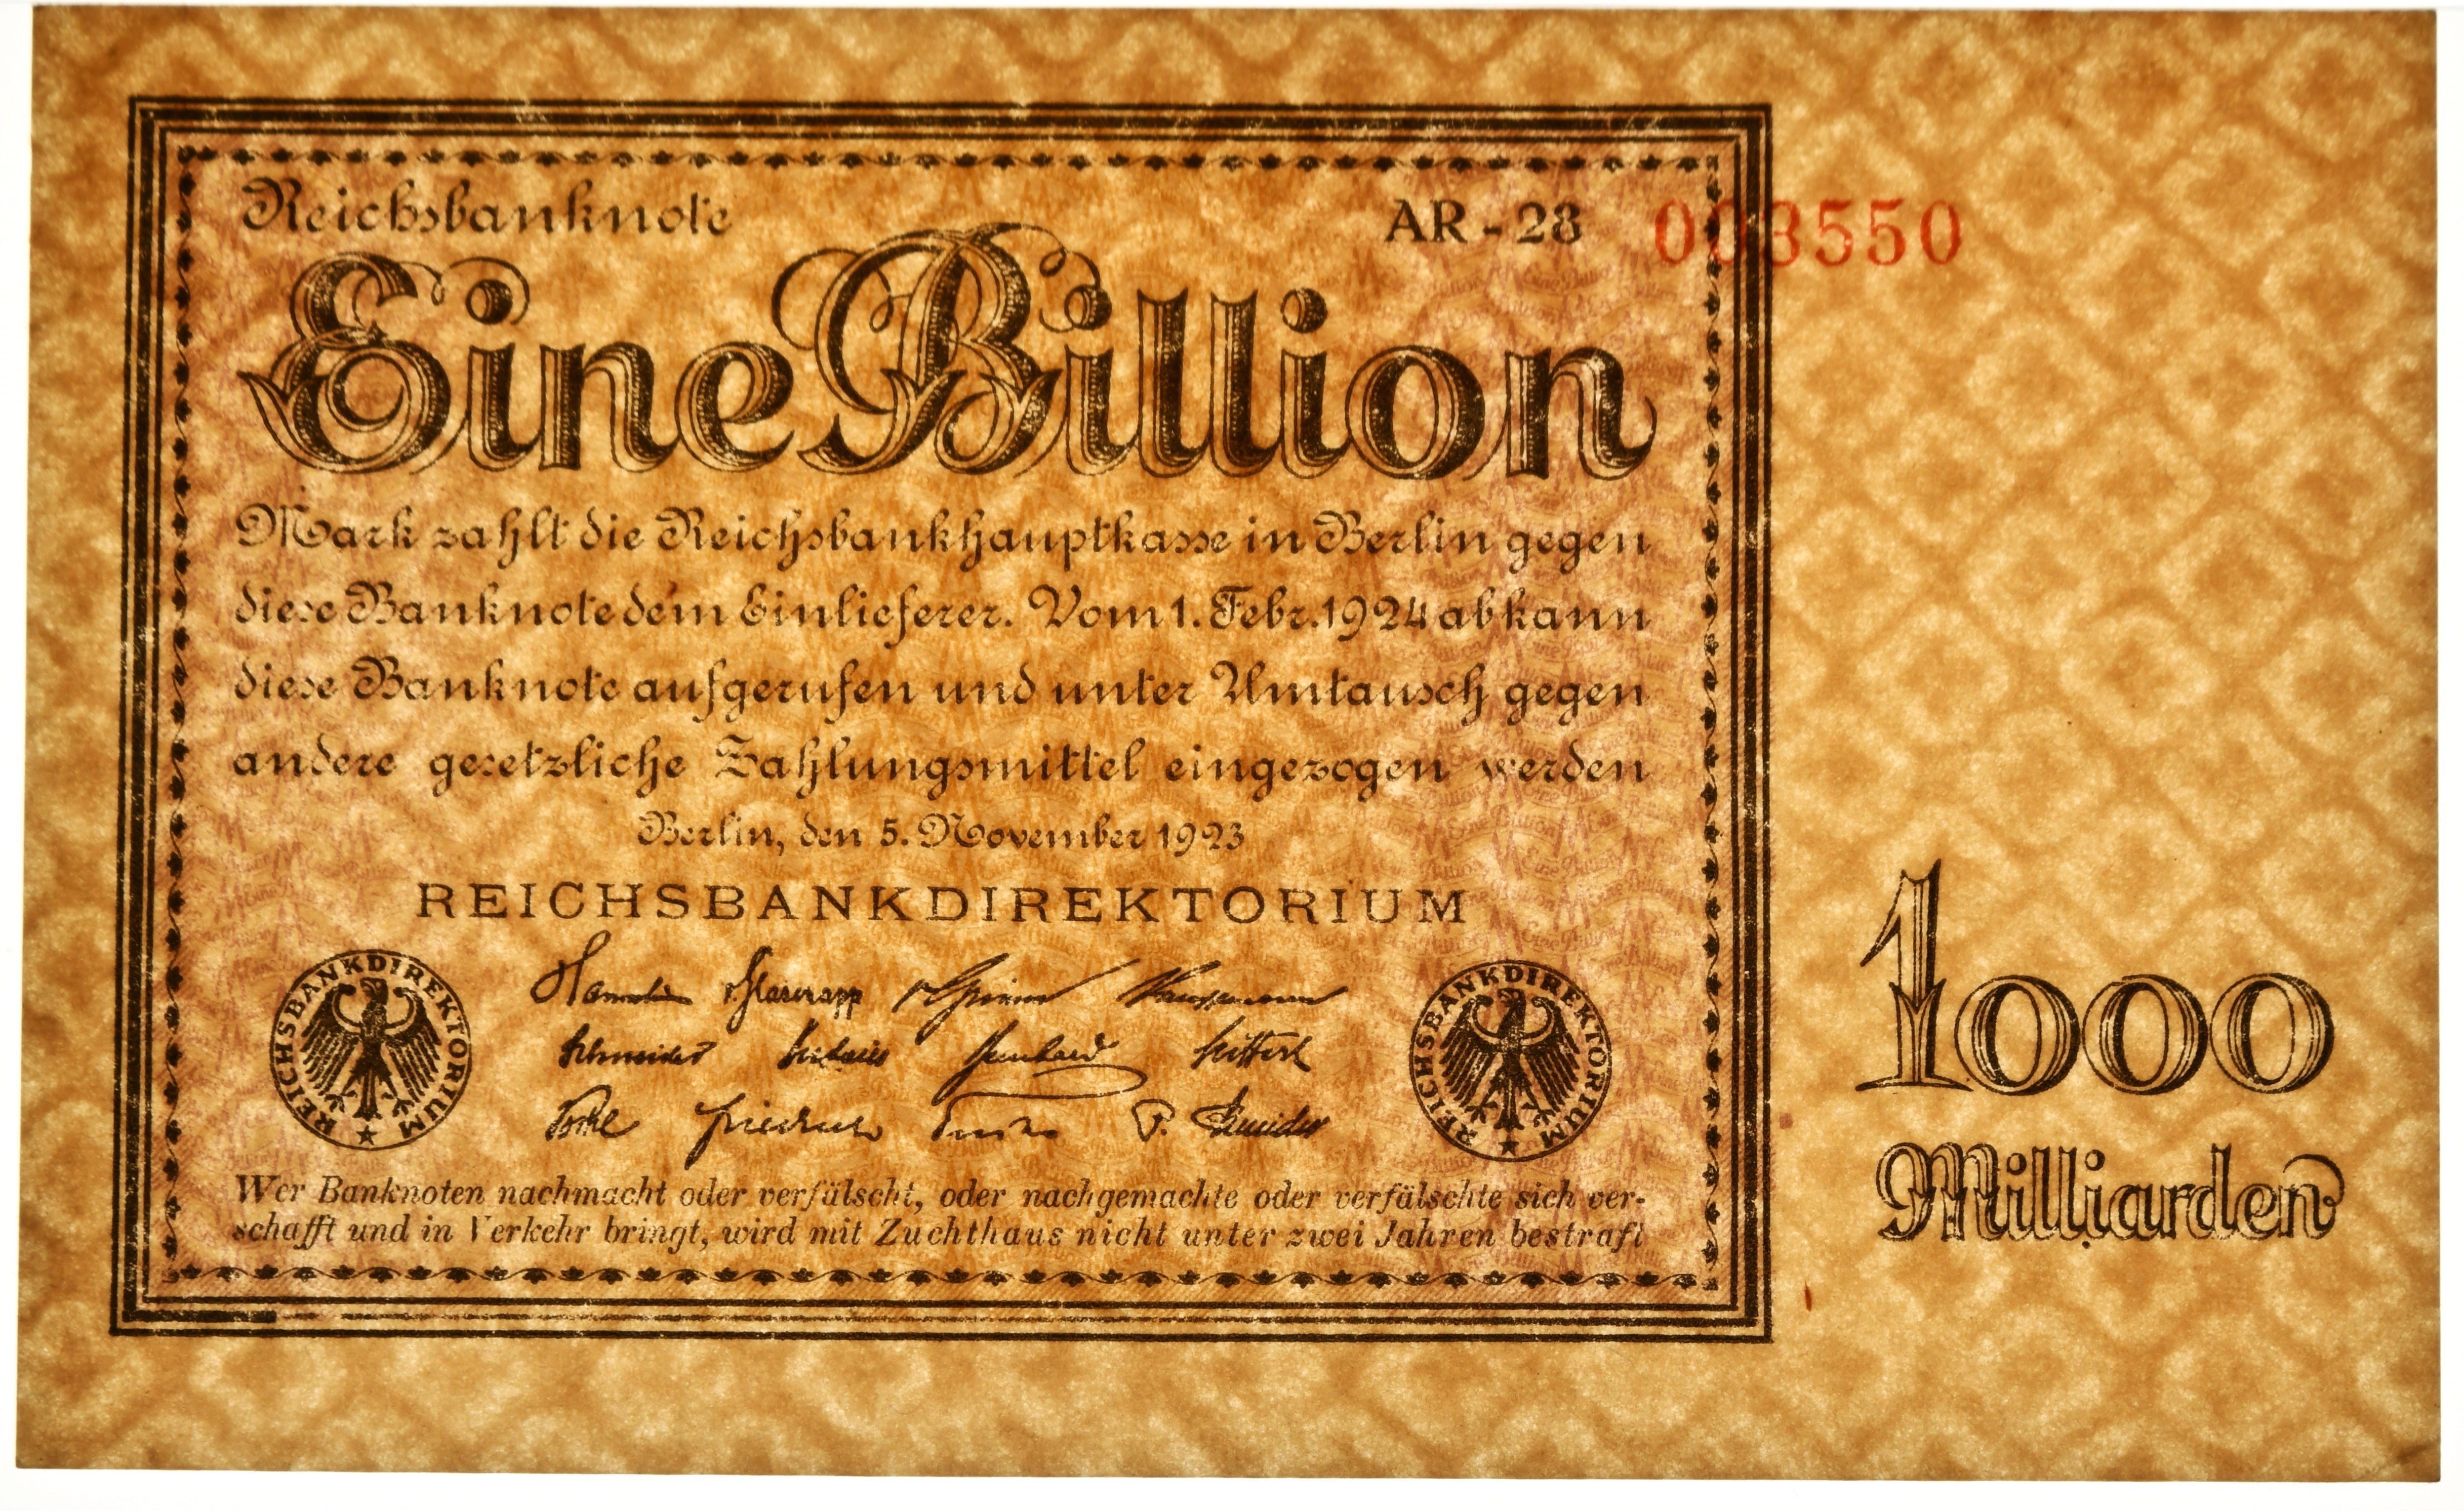 Reichsbanknote
AR - 28 003550
Eine Billion
Mark zahlt die Reichsbankhauptkasse in Berlin gegen
diese Banknote dem Einlieferer. Vom 1. Febr. 1924 ab kann
diese Banknote aufgerufen und unter Umtausch gegen
andere gesetzliche Zahlungsmittel eingezogen werden
Berlin, den 5. November 1923
REICHSBANKDIREKTORIUM
REICHSBANKDIREKTORIUM
v. Glasenapp v. Grimm Kauffmann
Schneider Budczies Bernhard Seiffert
Vocke Friedrich Fuchs P. Schneider
REICHSBANKDIREKTORIUM
Wer Banknoten nachmacht oder verfälscht, oder nachgemachte oder verfälschte sich ver-
schafft und in Verkehr bringt, wird mit Zuchthaus nicht unter zwei Jahren bestraft
1000
Milliarden